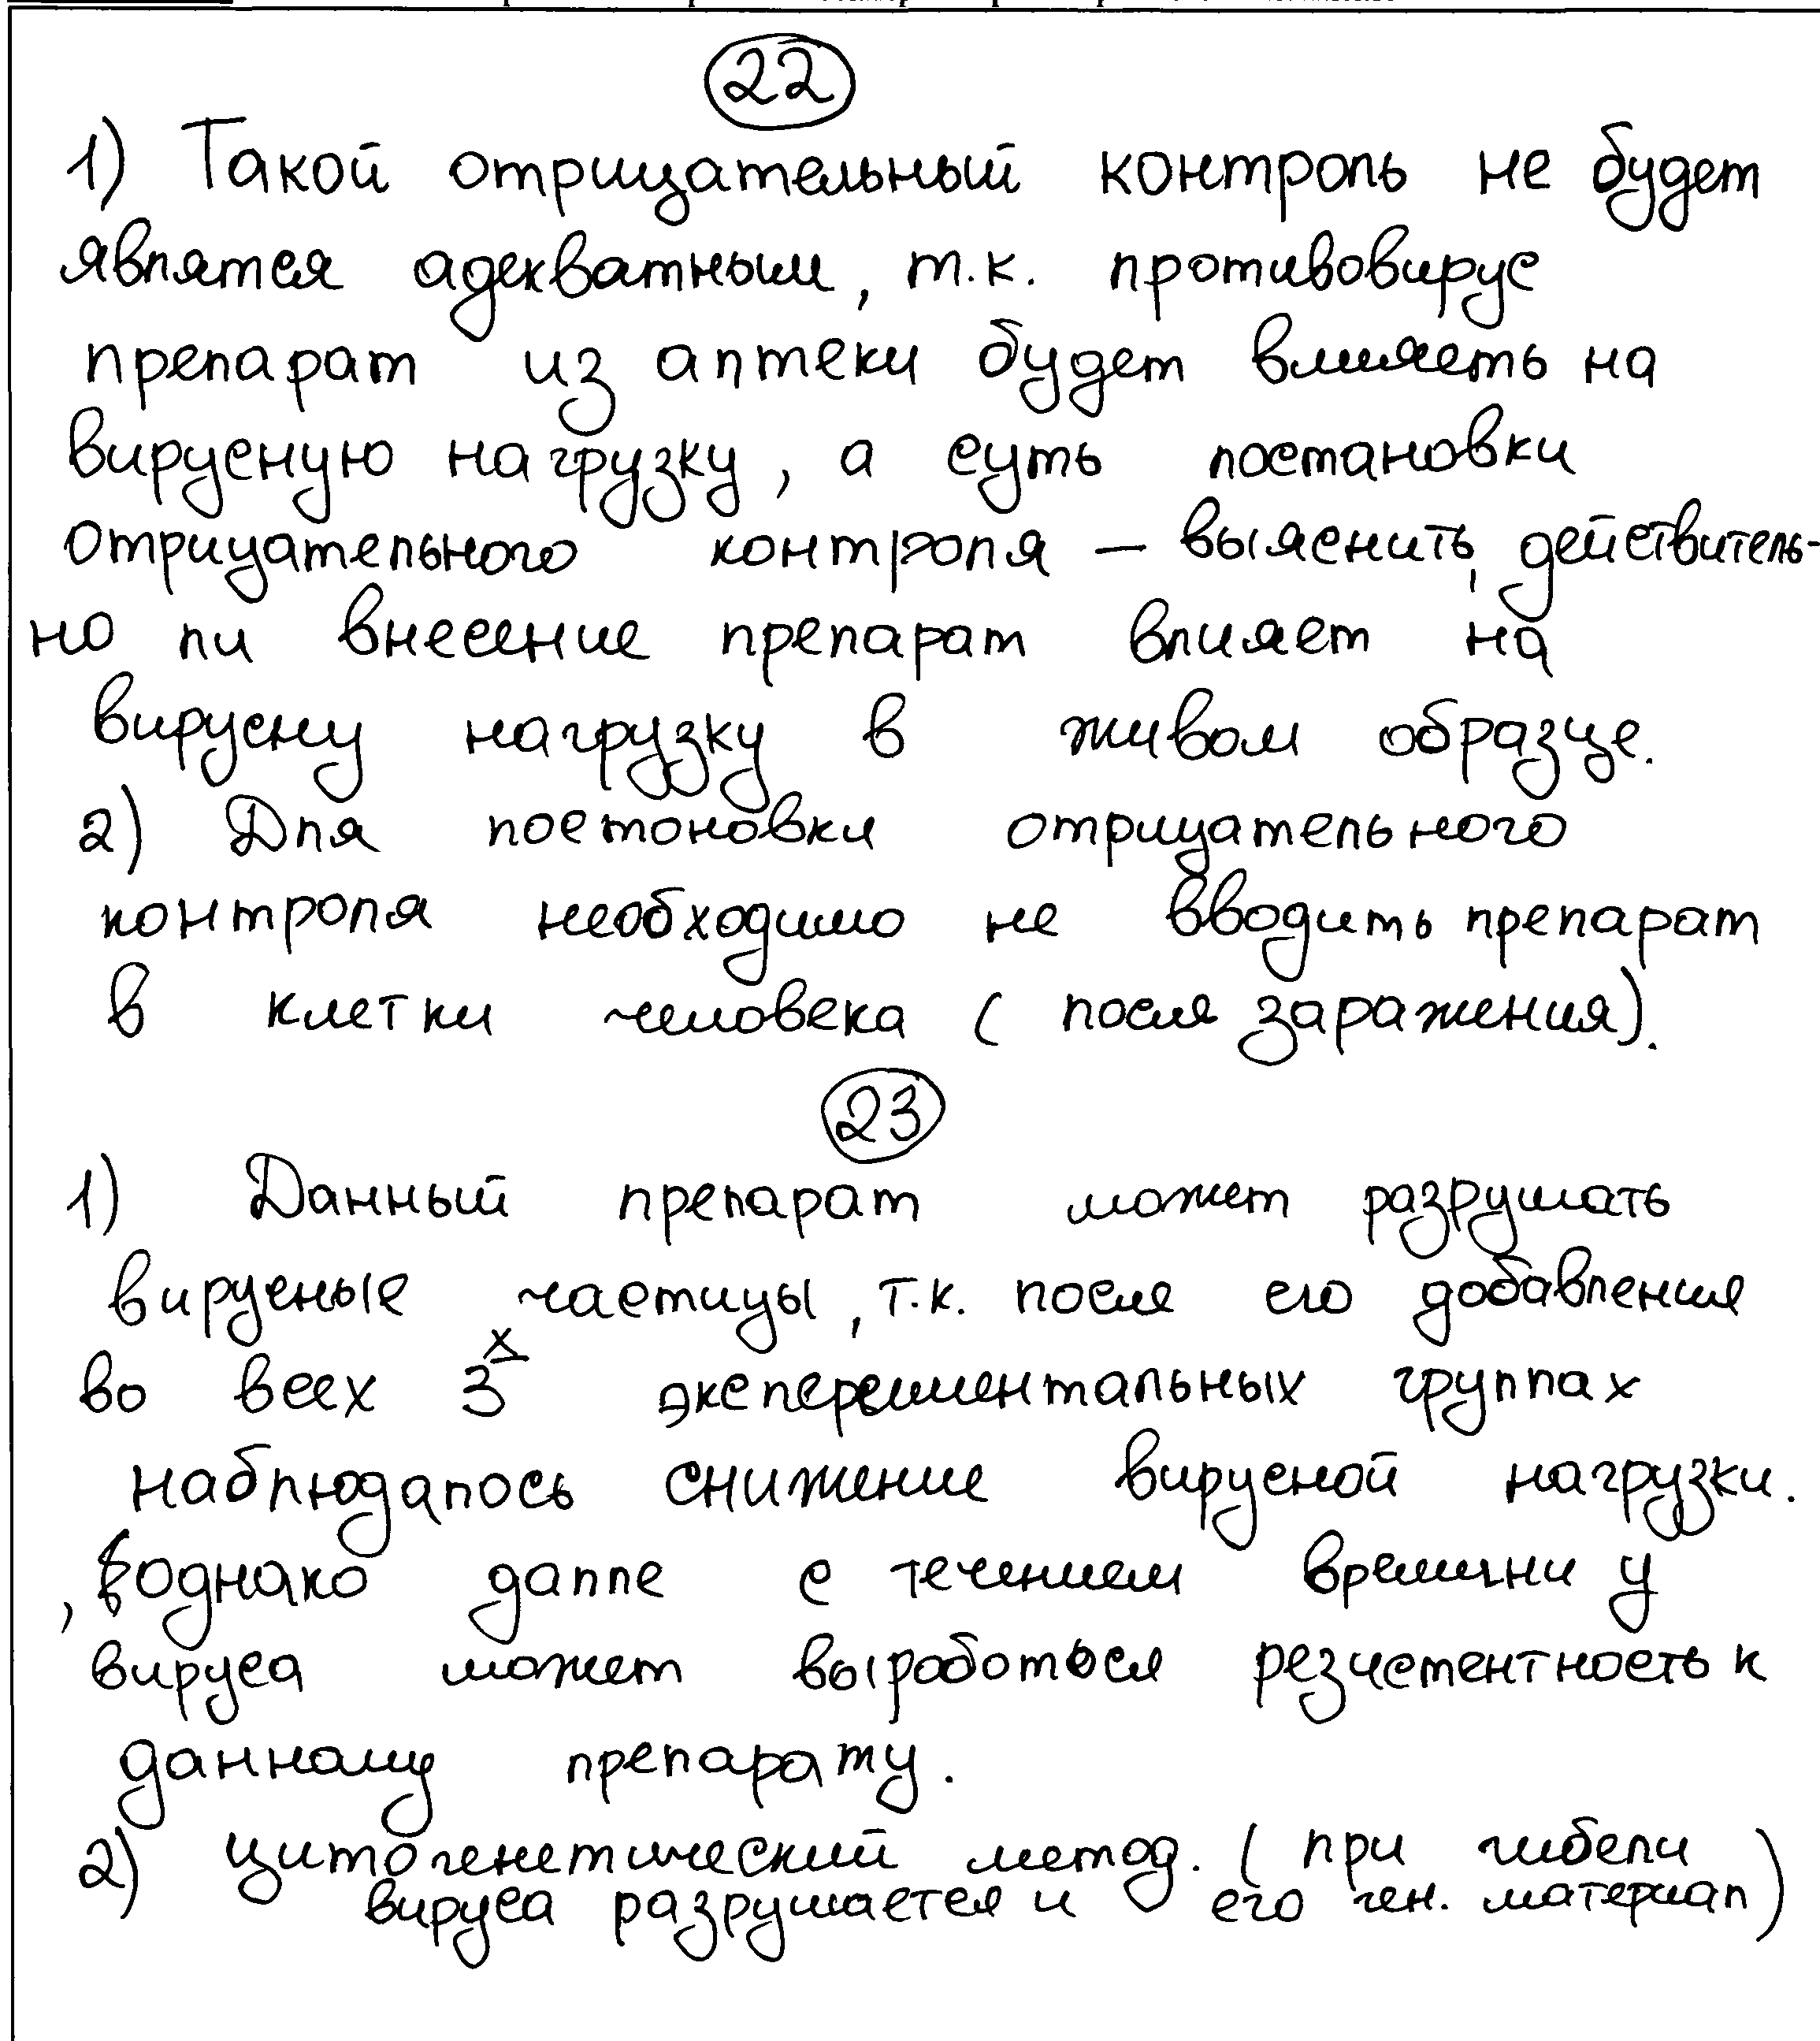 22
1) Такой отрицательный контроль не будет
являтся адекватным, т.к. противовирус
препарат из аптеки будет влиять на
вирусную нагрузку, а суть постановки
отрицательного контроля — выяснить, действитель-
но ли внесение препарат влияет на
вирусну нагрузку в живом образце.
2) Для постоновки отрицательного
контроля необходимо не вводить препарат
в клетки человека (после заражения).
23
1) Данный препарат может разрушать
вирусные частицы, т.к. после его добавления
во всех 3х экспериментальных группах
наблюдалось снижение вирусной нагрузки.
, однако далле с течением времени у
вируса может выроботься резистентность к
данному препарату.
2) цитогенетический метод. (при гибели
вируса разрушается и его ген. материал)